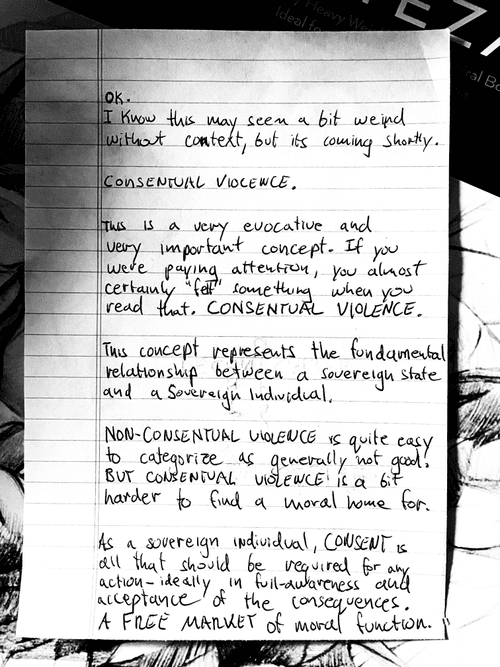 Heavy We
Ideal fo
EZ
al Bo
OK.
I know this may seem a bit weird
without context, but its coming shortly.
CONSENTUAL VIOLENCE.
This is a very evocative and
very important concept. If you
were paying attention, you almost
certainly "felt" something when you
read that. CONSENTUAL VIOLENCE.
This concept represents the fundamental
relationship between a sovereign state
and a Sovereign Individual.
NON-CONSENTUAL VIOLENCE is quite easy
to categorize as generally not good.
BUT CONSENTUAL VIOLENCE is a bit
harder to find a moral home for.
As a sovereign individual, CONSENT is
all that should be required for any
action-ideally in full-awareness and
acceptance of the consequences.
A FREE MARKET of moral function.